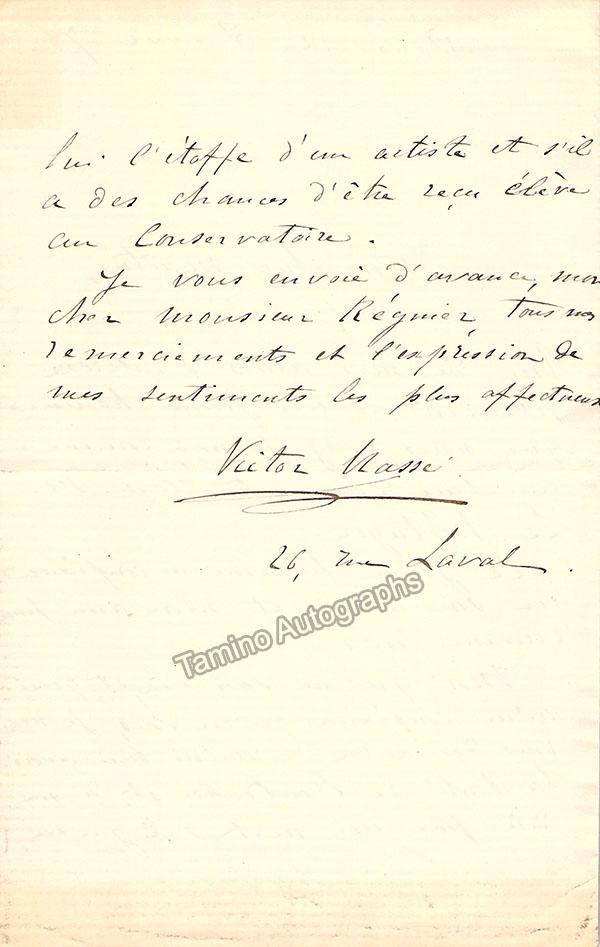 lui l'étoffe d'un artiste et s'il
a des chances d'être reçu élève
au Conservatoire.
Je vous envoie d'avance, mon
cher Monsieur Régnier, tous mes
remerciements et l'expression de
mes sentiments les plus affectueux
Victor Massé
26, rue Laval.
Tamino Autographs